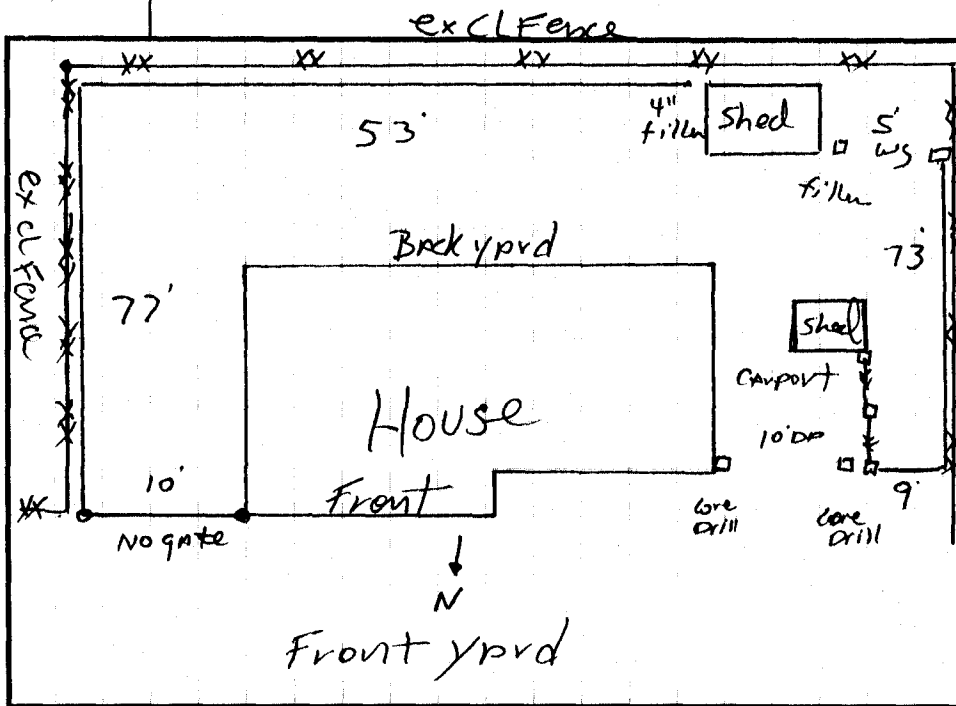 ex CL Fence
XX XX XX XX XX
53'
4"
filler
Shed
5'
WG
filler
ex CL Fence
Back yard
73'
77'
Shed
Carport
House
10' DD
10'
Front
9'
No gate
Core
Drill
Core
Drill
XX
N
Front yard